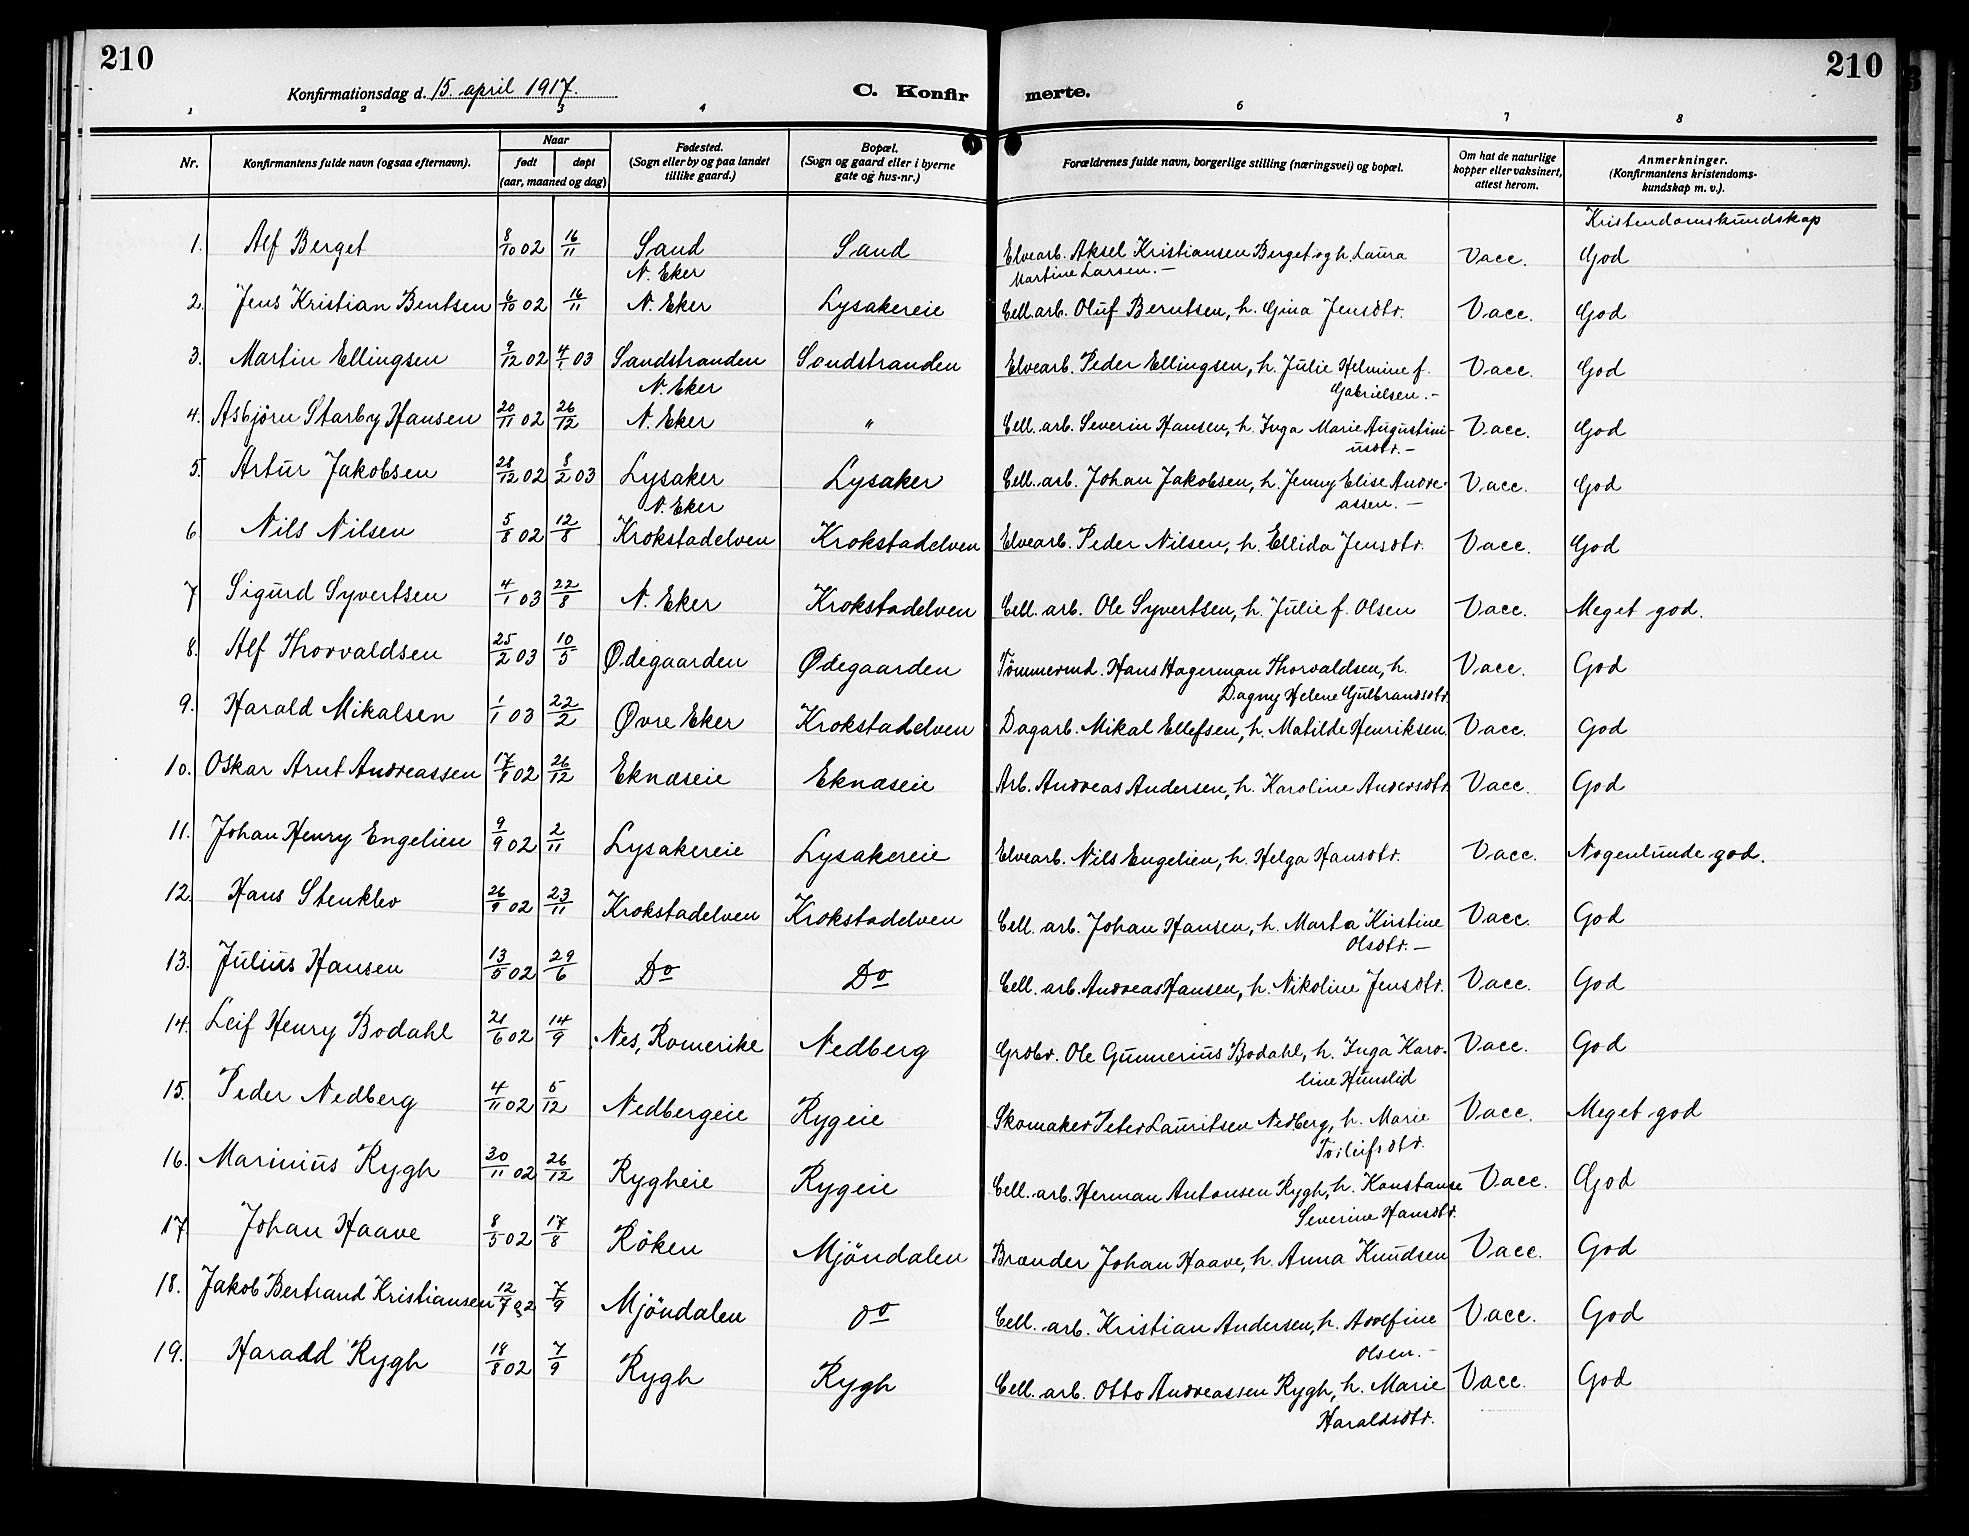 210
210
Konfirmationsdag d. 15. april 1917.
C. Konfir merte.
1 2 3 4 6 7 8
Nr.
Konfirmantens fulde navn (ogsaa efternavn).
Naar
født døpt
(aar, maaned og dag)
Fødested.
(Sogn eller by og paa landet
tillike gaard.)
Bopæl.
(Sogn og gaard eller i byerne
gate og hus-nr.)
Forældrenes fulde navn, borgerlige stilling (næringsvei) og bopæl.
Om hat de naturlige
kopper eller vaksinert,
attest herom.
Anmerkninger.
(Konfirmantens kristendoms-
kundskap m. v.).
Kristendomskundskap
1. Alf Berget 8/10 02 16/11 Sand Sand Elvearb. Aksel Kristiansen Berget og h. Laura Vacc. God
N. Eker Martine Larsen.—
2. Jens Kristian Bentsen 6/10 02 16/11 N. Eker Lysakereie Cell. arb. Oluf Berntsen, h. Gina Jensdtr. Vacc. God
3. Martin Ellingsen 9/12 02 4/1 03 Sandstranden Sandstranden Elvearb. Peder Ellingsen, h. Julie Helmine f. Vacc. God
N. Eker Gabrielsen.—
4. Asbjörn Starby Hansen 20/11 02 26/12 N. Eker " Cell. arb. Severin Hansen, h. Inga Marie Augustini- Vacc. God
usdtr.—
5. Artur Jakobsen 28/12 02 8/2 03 Lysaker Lysaker Cell. arb. Johan Jakobsen, h. Jenny Elise Andre- Vacc. God
N. Eker assen.—
6 Nils Nilsen 5/8 02 12/8 Krokstadelven Krokstadelven Elvearb. Peder Nilsen, h. Ellida Jensdtr. Vacc. God
7 Sigurd Syvertsen 4/1 03 22/8 N. Eker Krokstadelven Cell. arb. Ole Syvertsen, h. Julie f. Olsen Vacc. Meget god.
8. Alf Thorvaldsen 25/2 03 10/5 Ødegaarden Ødegaarden Tømmermd. Hans Hagerman Thorvaldsen, h. Vacc. God
Dagny Helene Gulbrandsdtr.
9. Harald Mikalsen 1/1 03 22/2 Øvre Eker Krokstadelven Dagarb. Mikal Ellefsen, h. Matilde Henriksen. Vacc. God
10. Oskar Arnt Andreassen 17/8 02 26/12 Eknæseie Eknæseie Arb. Andreas Andersen, h. Karoline Andersdtr. Vacc. God
11. Johan Henry Engelien 9/9 02 2/11 Lysakereie Lysakereie Elvearb. Nils Engelien, h. Helga Hansdtr. Vacc. Nogenlunde god.
12. Hans Stenklev 26/9 02 23/11 Krokstadelven Krokstadelven Cell. arb. Johan Hansen, h. Marta Kirstine Vacc. God
Olsdtr.—
13. Julius Hansen 13/5 02 29/6 Do Do Cell. arb. Andreas Hansen, h. Nikoline Jensdtr. Vacc. God
14. Leif Henry Bodahl 21/6 02 14/9 Nes, Romerike Nedberg Grdbr. Ole Gunnerius Bodahl, h. Inga Karo- Vacc. God
line Hunslid
15. Peder Nedberg 4/11 02 5/12 Nedbergeie Rygeie Skomaker Peter Lauritsen Nedberg, h. Marie Vacc. Meget god
16. Marinius Rygh 30/11 02 26/12 Rygheie Rygeie Cell. arb. Herman Antonsen Rygh, h. Konstanse Vacc. God
Severine Hansdtr.
17. Johan Haave 8/5 02 17/8 Röken Mjöndalen Brænder Johan Haave, h. Anna Knudsen Vacc. God
18. Jakob Bertrand Kristiansen 12/7 02 7/9 Mjöndalen do Cell. arb. Kristian Andersen, h. Adolfine Vacc. God
Olsen.—
19. Harald Rygh 18/8 02 7/9 Rygh Rygh Cell. arb. Otto Andreassen Rygh, h. Marie Vacc. God
Haraldsdtr.